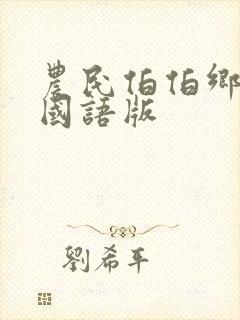 農民伯伯鄉
國語版
劉希平